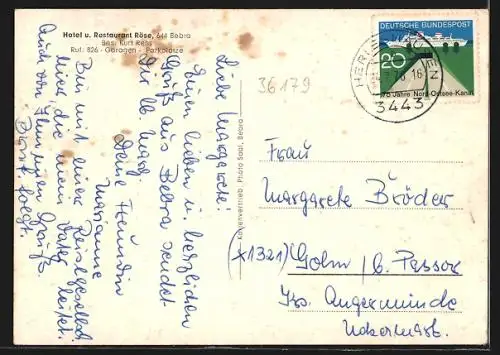 Hotel u. Restaurant Röse, 644 Bebra
Bes. Kurt Rehs
Ruf: 826 - Garagen - Parkplätze
Liebe Margarete!
Einen lieben u. herzlichen
Gruß aus Bebra sendet
Dir lb. Marg.
Deine Freundin
Marianne
Bin mit einer Reisegesellsch.
hier die mein Vater leitet.
Auch von Ihm einen Gruß.
Brief folgt.
36179
Photo Saal, Bebra
DEUTSCHE BUNDESPOST
20
75 Jahre Nord-Ostsee-Kanal
3443
Frau
Margarete Bröder
(x1321) Golm / b. Passow
Krs. Angermünde
Uckermark.